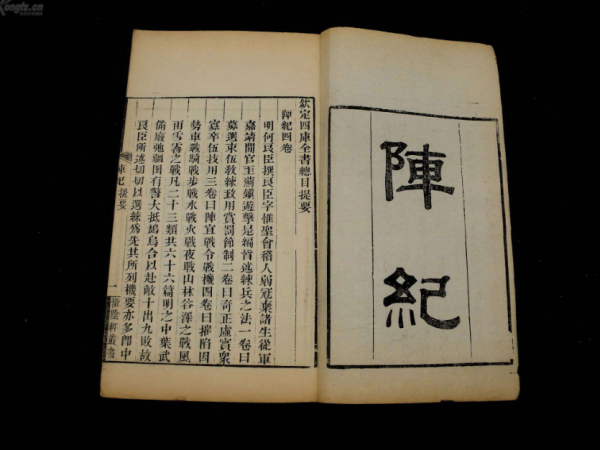 Kongfz.cn
陣紀
欽定四庫全書總目提要
陣紀四卷
明何良臣撰良臣字惟聖會稽人弱冠棄諸生從軍
嘉靖間官至薊鎮遊擊是編皆述練兵之法一卷曰
募選束伍教練致用賞罰節制二卷曰奇正虛實衆
寡率然技用三卷曰陣宜戰令戰機四卷曰摧陷因
勢車戰騎戰步戰水戰火戰夜戰山林谷澤之戰風
雨雪霧之戰凡二十三類共六十六篇明之中葉武
備廢弛疆圉有警大抵鳩烏合以赴敵十出九敗故
良臣所述切切以選練爲先其所列機要亦多卽中
陣紀 提要 一 惜陰軒叢書